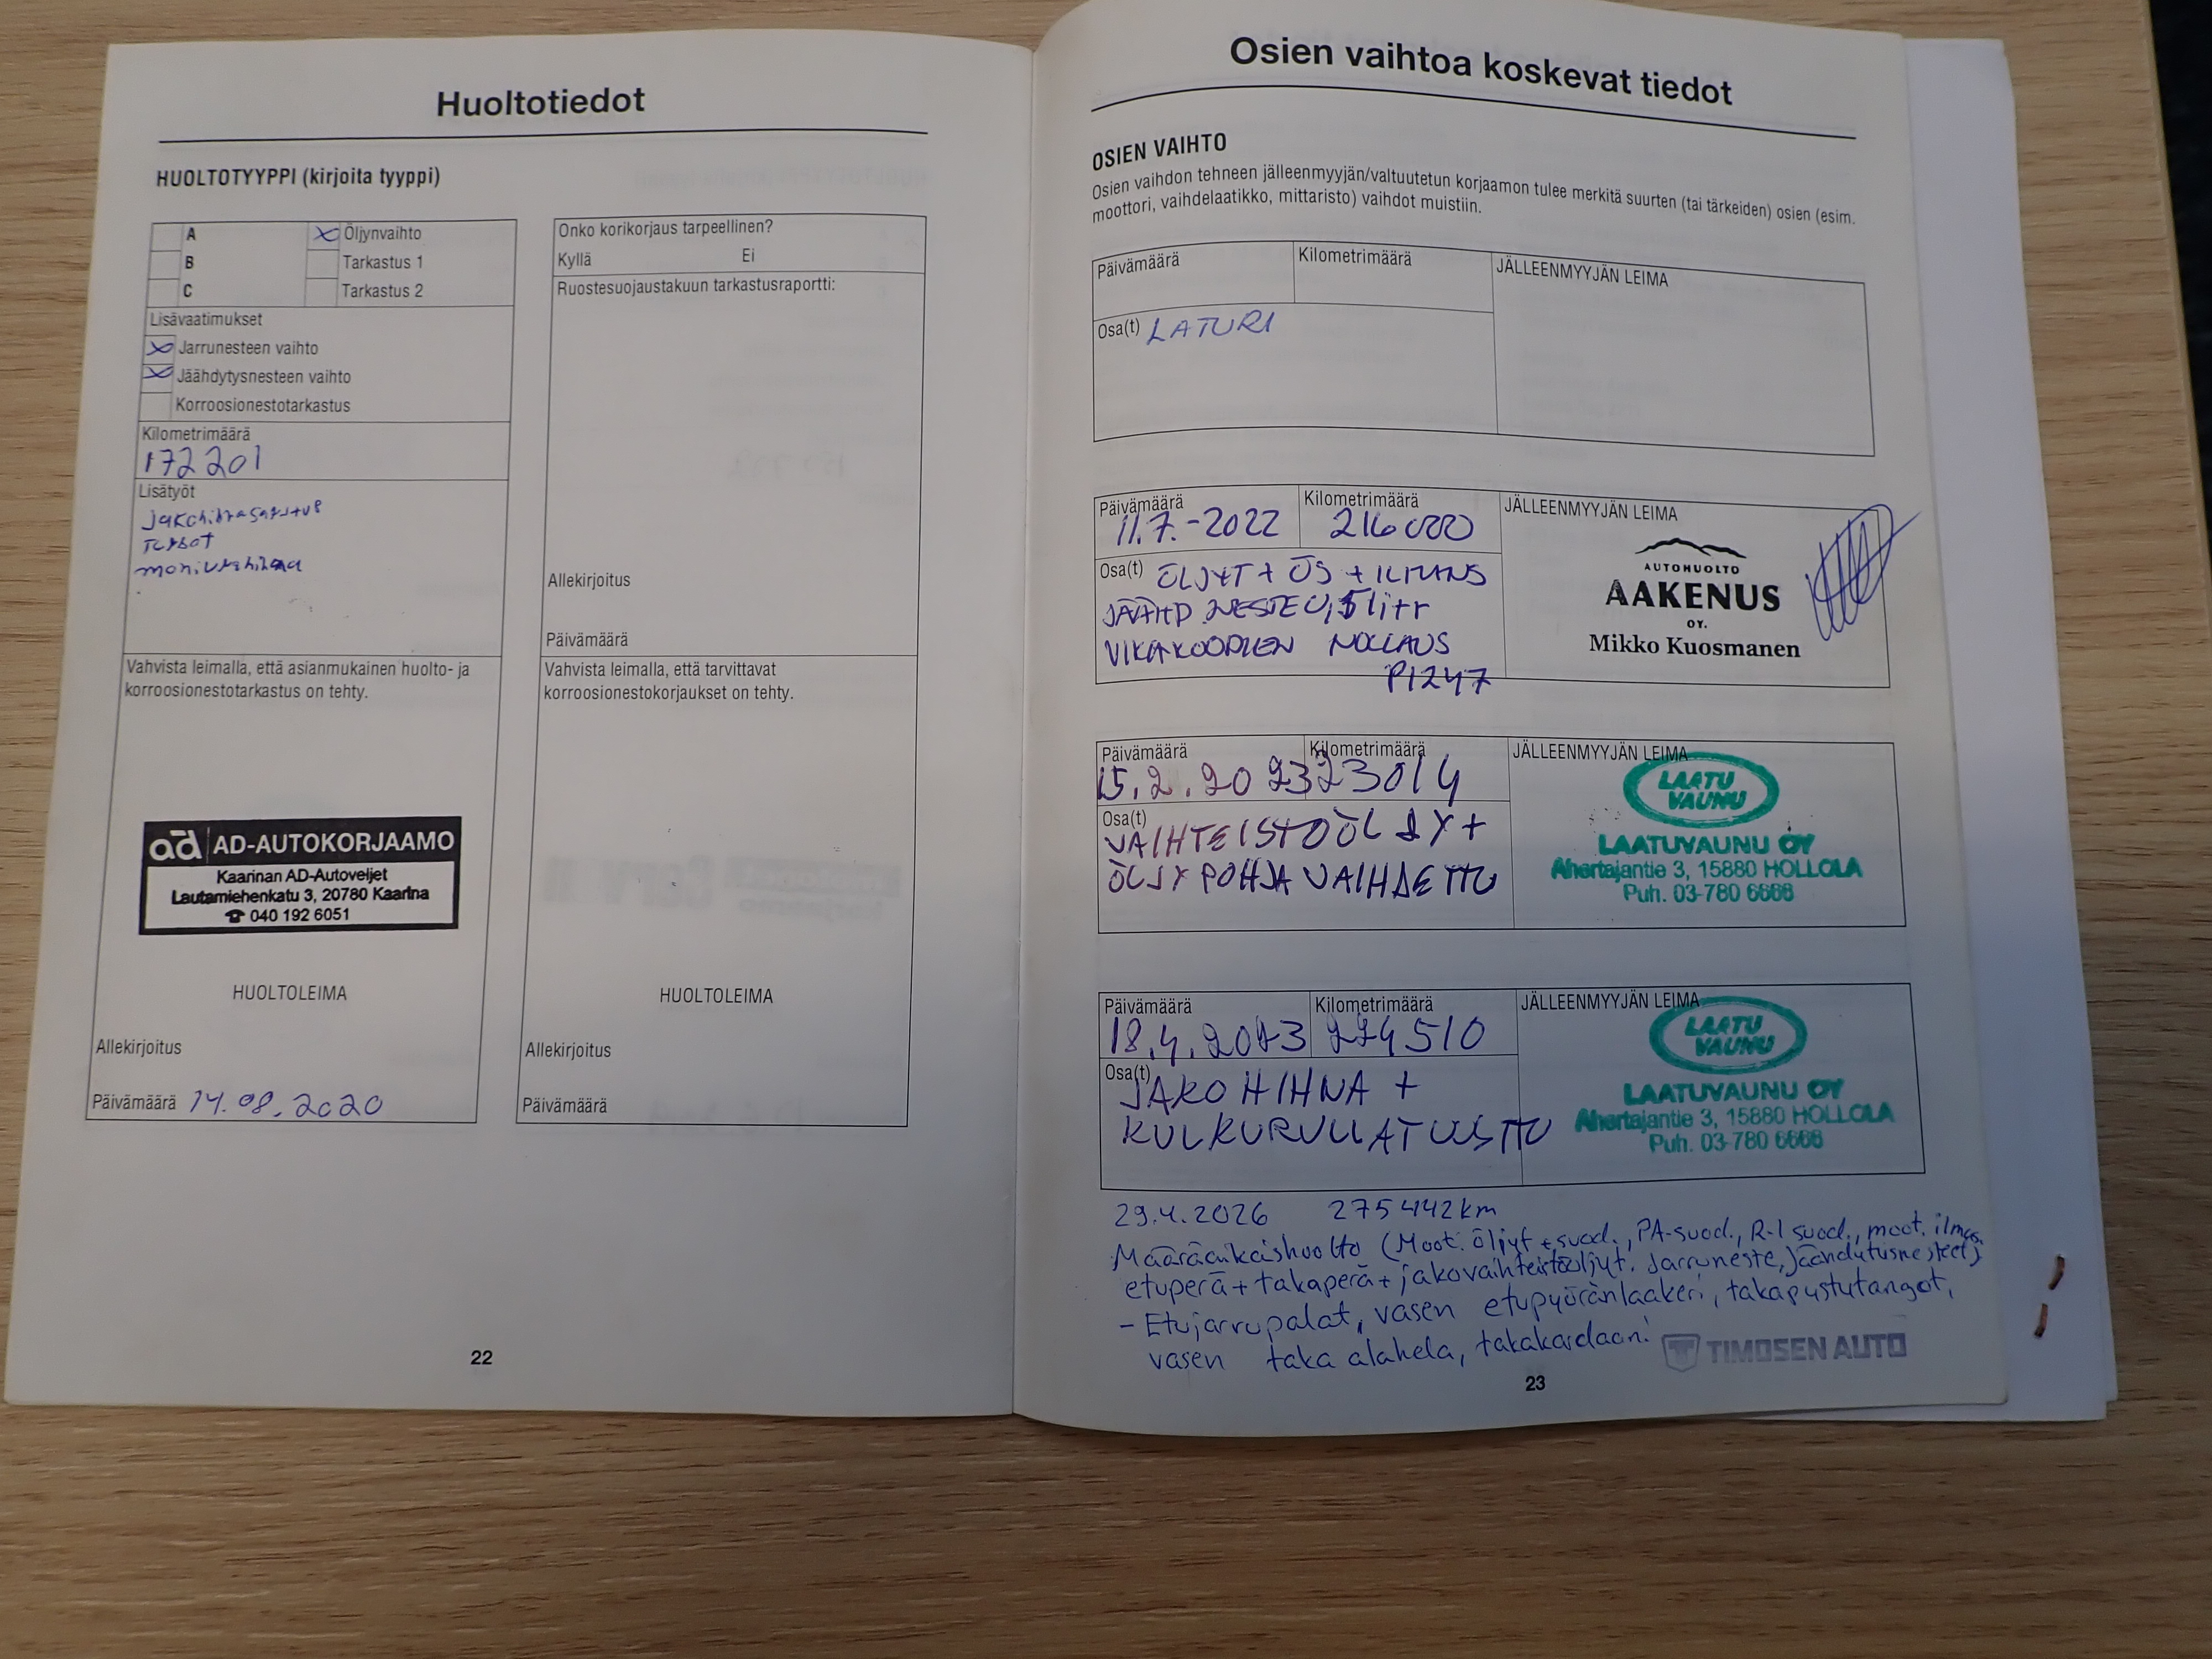 Huoltotiedot
HUOLTOTYYPPI (kirjoita tyyppi)
A
Öljynvaihto
B
Tarkastus 1
C
Tarkastus 2
Lisävaatimukset
Jarrunesteen vaihto
Jäähdytysnesteen vaihto
Korroosionestotarkastus
Kilometrimäärä
172201
Lisätyöt
Turbot
Vahvista leimalla, että asianmukainen huolto- ja
korroosionestotarkastus on tehty.
ad AD-AUTOKORJAAMO
Kaarinan AD-Autoveljet
Lautamiehenkatu 3, 20780 Kaarina
☎ 040 192 6051
HUOLTOLEIMA
Allekirjoitus
Päivämäärä 14.08.2020
Onko korikorjaus tarpeellinen?
Kyllä Ei
Ruostesuojaustakuun tarkastusraportti:
Allekirjoitus
Päivämäärä
Vahvista leimalla, että tarvittavat
korroosionestokorjaukset on tehty.
HUOLTOLEIMA
Allekirjoitus
Päivämäärä
22
Osien vaihtoa koskevat tiedot
OSIEN VAIHTO
Osien vaihdon tehneen jälleenmyyjän/valtuutetun korjaamon tulee merkitä suurten (tai tärkeiden) osien (esim.
moottori, vaihdelaatikko, mittaristo) vaihdot muistiin.
Päivämäärä
Kilometrimäärä
JÄLLEENMYYJÄN LEIMA
Osa(t) LATURI
Päivämäärä
11.7.-2022
Kilometrimäärä
216000
JÄLLEENMYYJÄN LEIMA
Osa(t) ÖLJYT + ÖS + ILMANS
JÄÄHD NESTE 0,5 litr
VIKAKOODIEN NOLLAUS
P1247
AUTOHUOLTO
AAKENUS
OY.
Mikko Kuosmanen
Päivämäärä
15.2.2023
Kilometrimäärä
223014
JÄLLEENMYYJÄN LEIMA
Osa(t)
VAIHTEISTOÖLJY +
ÖLJYPOHJA VAIHDETTU
LAATU
VAUNU
LAATUVAUNU OY
Ahertajantie 3, 15880 HOLLOLA
Puh. 03-780 6666
Päivämäärä
18.4.2023
Kilometrimäärä
224510
JÄLLEENMYYJÄN LEIMA
Osa(t)
JAKOHIHNA +
LAATU
VAUNU
LAATUVAUNU OY
Ahertajantie 3, 15880 HOLLOLA
Puh. 03-780 6666
29.4.2026 275442km
Määräaikaishuolto (Moot. öljyt + suod., PA-suod., R-I suod., moot. ilmas.
etuperä + takaperä + jakovaihteistoöljyt. Jarruneste, jäähdytusnesteet)
- Etujarrupalat, vasen etupyöränlaakeri, takapustutangot,
vasen taka alahela, takakardaani
TIMOSEN AUTO
23